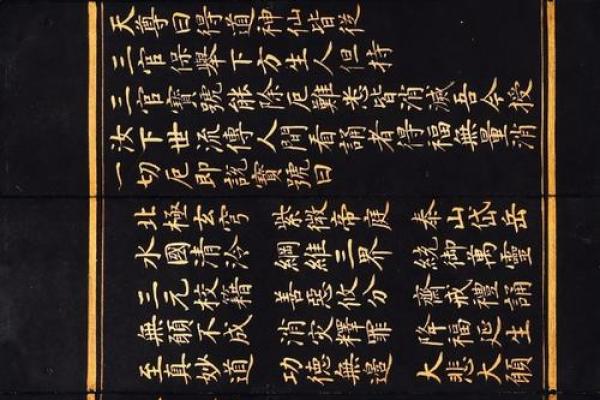 天尊曰得道神仙皆從
三官保舉下方生人但持
三官寶號能除厄難悉皆消滅吾今授
汝下世流傳人間看誦者得福無量消
一切厄即說寶號曰
北極玄穹 紫微帝庭 泰山岱岳
水國清泠 綱維三界 統御萬靈
三元校籍 善惡攸分 齋戒禮誦
無願不成 消灾釋罪 降福延生
至真妙道 功德無邊 大悲大願